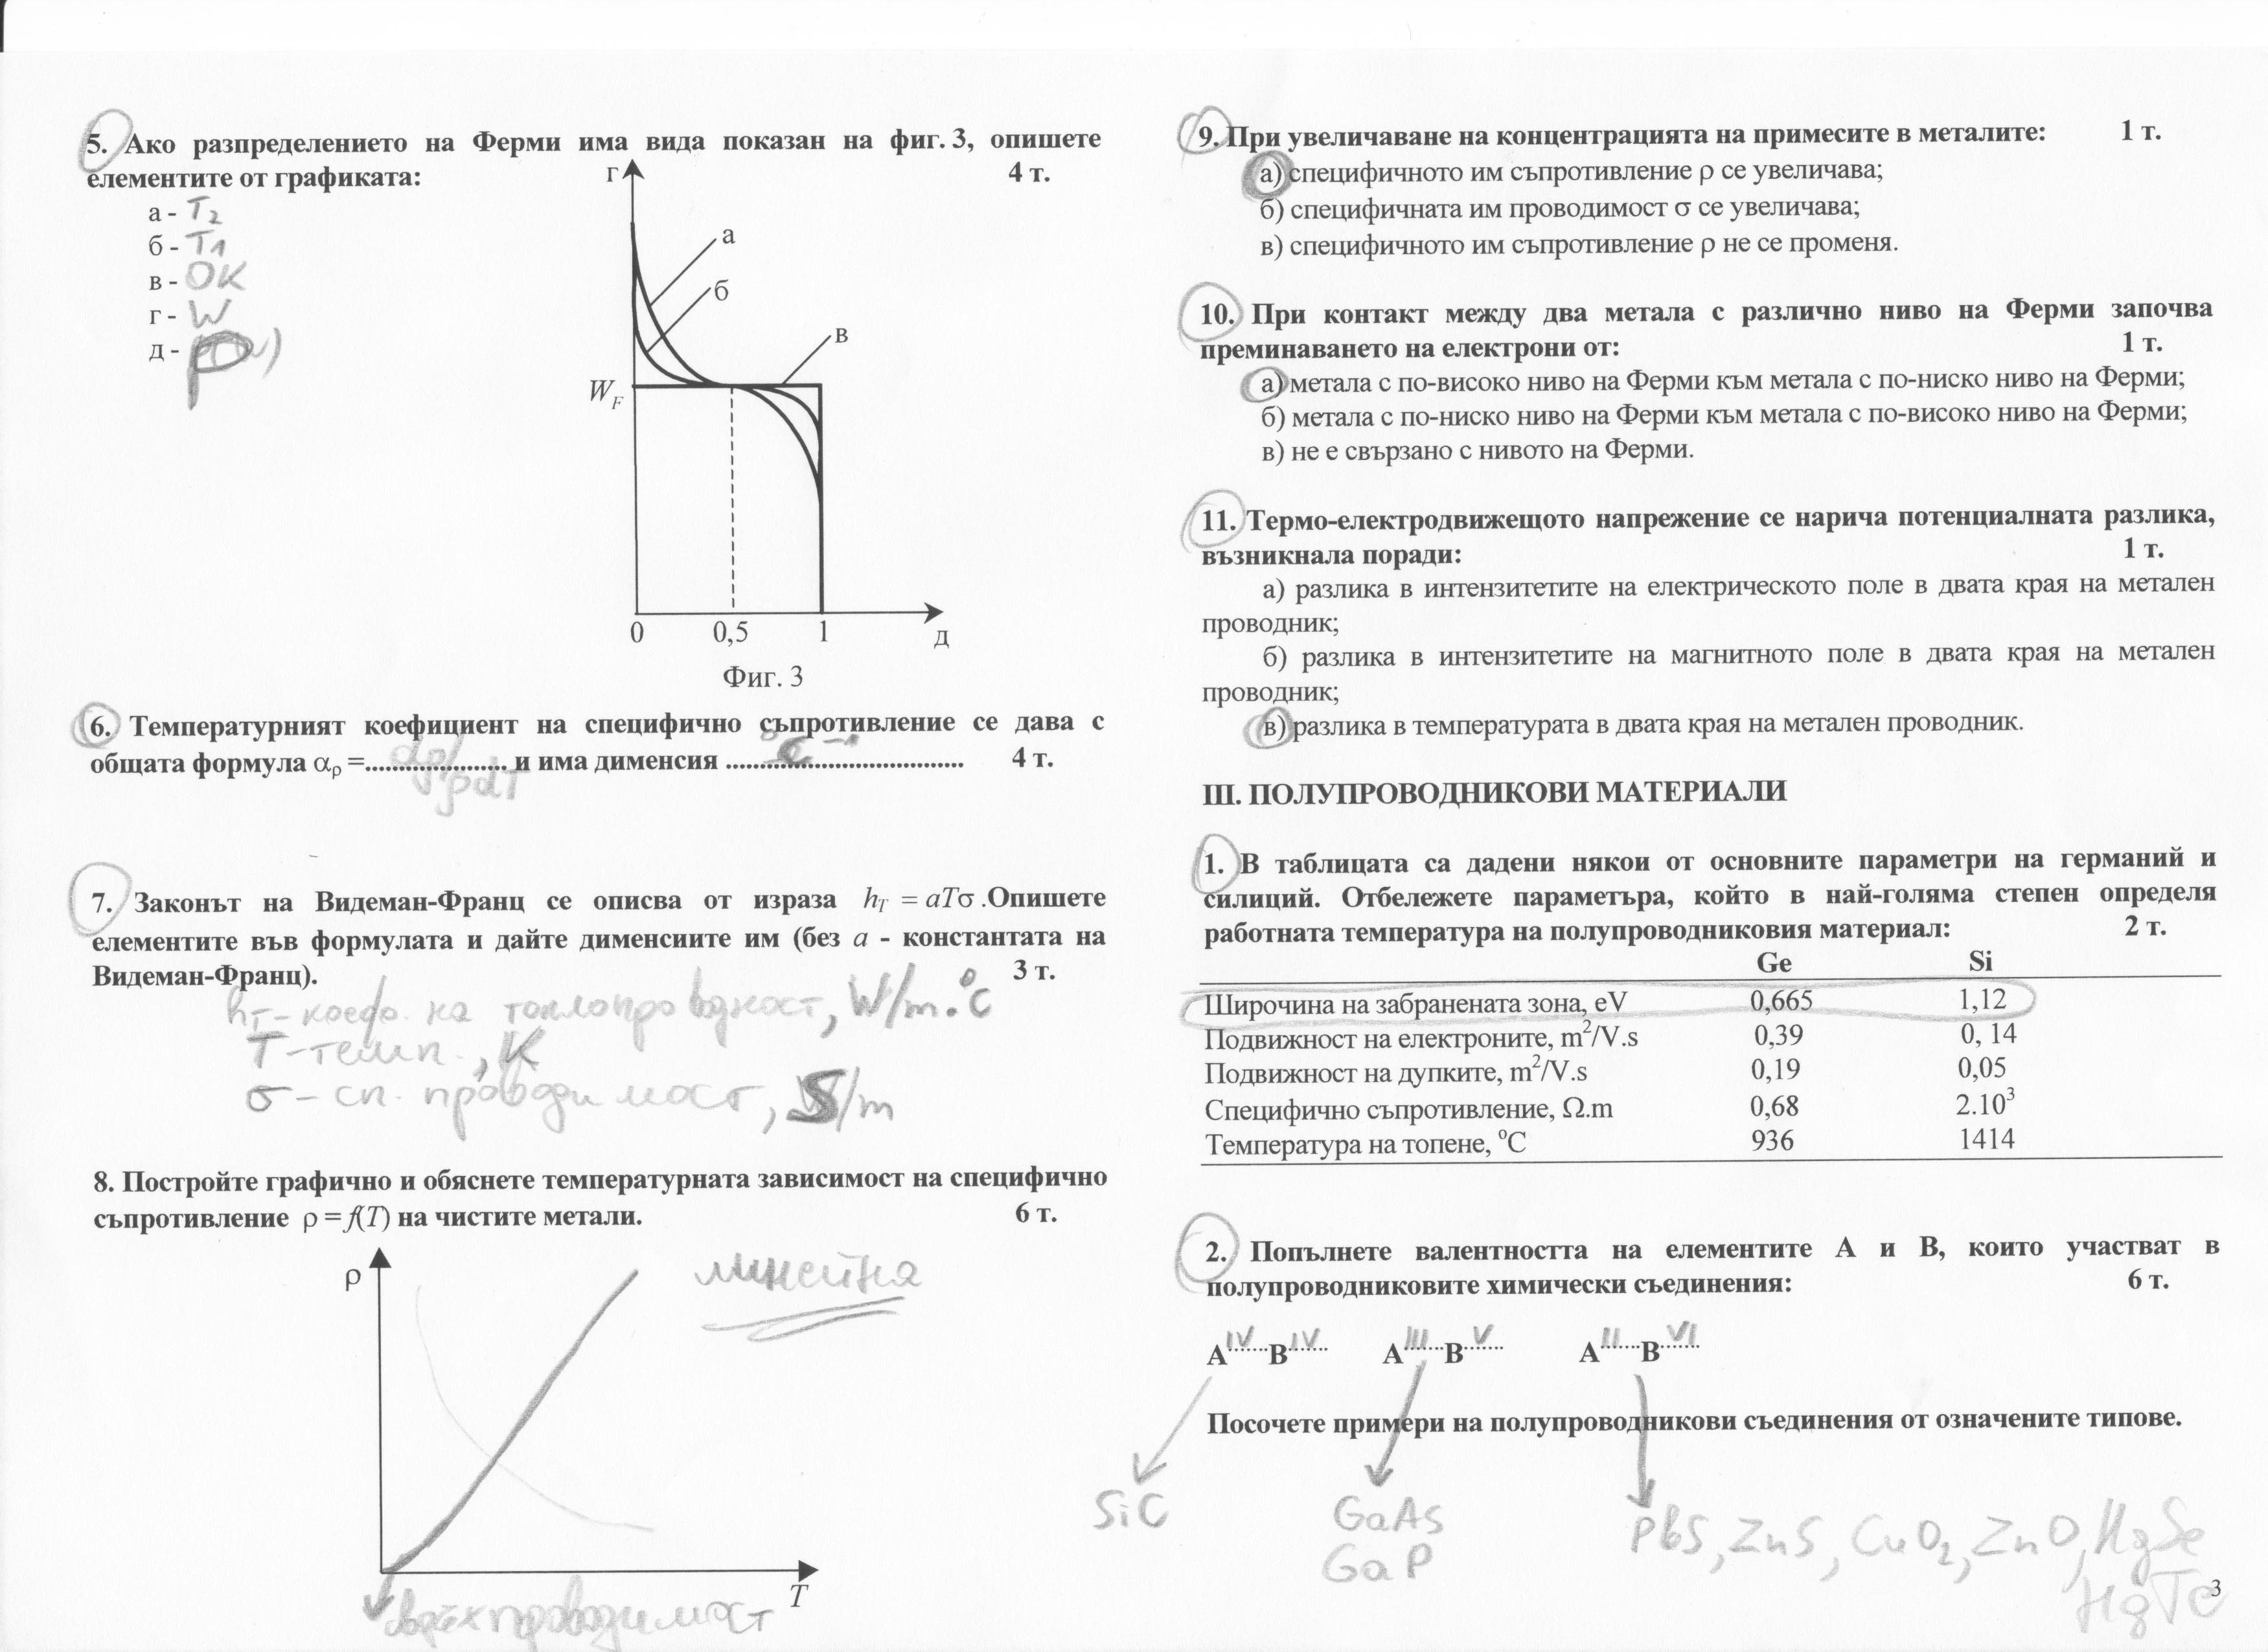 5. Ако разпределението на Ферми има вида показан на фиг. 3, опишете
елементите от графиката: 4 т.
а - T₂
б - T₁
в - 0K
г - W
д - p(w)
г
а
б
в
W_F
0 0,5 1 д
Фиг. 3
6. Температурният коефициент на специфично съпротивление се дава с
общата формула αρ =.................... и има дименсия .................................. 4 т.
dρ/ρdT
°C⁻¹
7. Законът на Видеман-Франц се описва от израза h_T = aTσ .Опишете
елементите във формулата и дайте дименсиите им (без a - константата на
Видеман-Франц). 3 т.
h_T - коеф. на топлопроводност, W/m.°C
T - темп., K
σ - сп. проводимост, S/m
8. Постройте графично и обяснете температурната зависимост на специфично
съпротивление ρ = f(T) на чистите метали. 6 т.
ρ
линейна
T
свръхпроводимост
9. При увеличаване на концентрацията на примесите в металите: 1 т.
а) специфичното им съпротивление ρ се увеличава;
б) специфичната им проводимост σ се увеличава;
в) специфичното им съпротивление ρ не се променя.
10. При контакт между два метала с различно ниво на Ферми започва
преминаването на електрони от: 1 т.
а) метала с по-високо ниво на Ферми към метала с по-ниско ниво на Ферми;
б) метала с по-ниско ниво на Ферми към метала с по-високо ниво на Ферми;
в) не е свързано с нивото на Ферми.
11. Термо-електродвижещото напрежение се нарича потенциалната разлика,
възникнала поради: 1 т.
а) разлика в интензитетите на електрическото поле в двата края на метален
проводник;
б) разлика в интензитетите на магнитното поле в двата края на метален
проводник;
в) разлика в температурата в двата края на метален проводник.
III. ПОЛУПРОВОДНИКОВИ МАТЕРИАЛИ
1. В таблицата са дадени някои от основните параметри на германий и
силиций. Отбележете параметъра, който в най-голяма степен определя
работната температура на полупроводниковия материал: 2 т.
Ge Si
Широчина на забранената зона, eV 0,665 1,12
Подвижност на електроните, m²/V.s 0,39 0, 14
Подвижност на дупките, m²/V.s 0,19 0,05
Специфично съпротивление, Ω.m 0,68 2.10³
Температура на топене, °C 936 1414
2. Попълнете валентността на елементите А и В, които участват в
полупроводниковите химически съединения: 6 т.
A^IV B^IV A^III B^V A^II B^VI
Посочете примери на полупроводникови съединения от означените типове.
SiC
GaAs
GaP
PbS, ZnS, CuO₂, ZnO, HgSe
HgTe
3